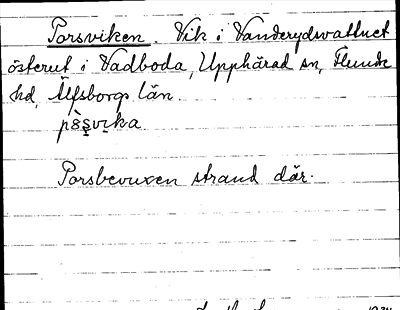 Porsviken. Vik i Vanderydsvattnet
österut i Vadboda, Upphärad sn, Flundre
hd, Älfsborgs län.
Porsbevuxen strand där.